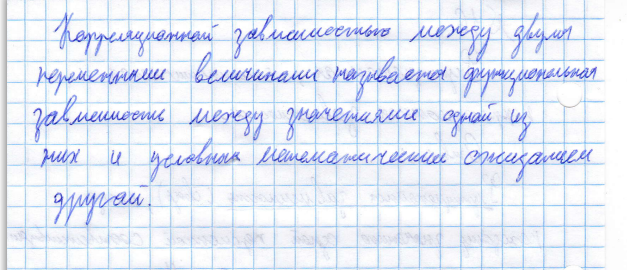 Корреляционной зависимостью между двумя
переменными величинами называется функциональная
зависимость между значениями одной из
них и условным математическим ожиданием
другой.